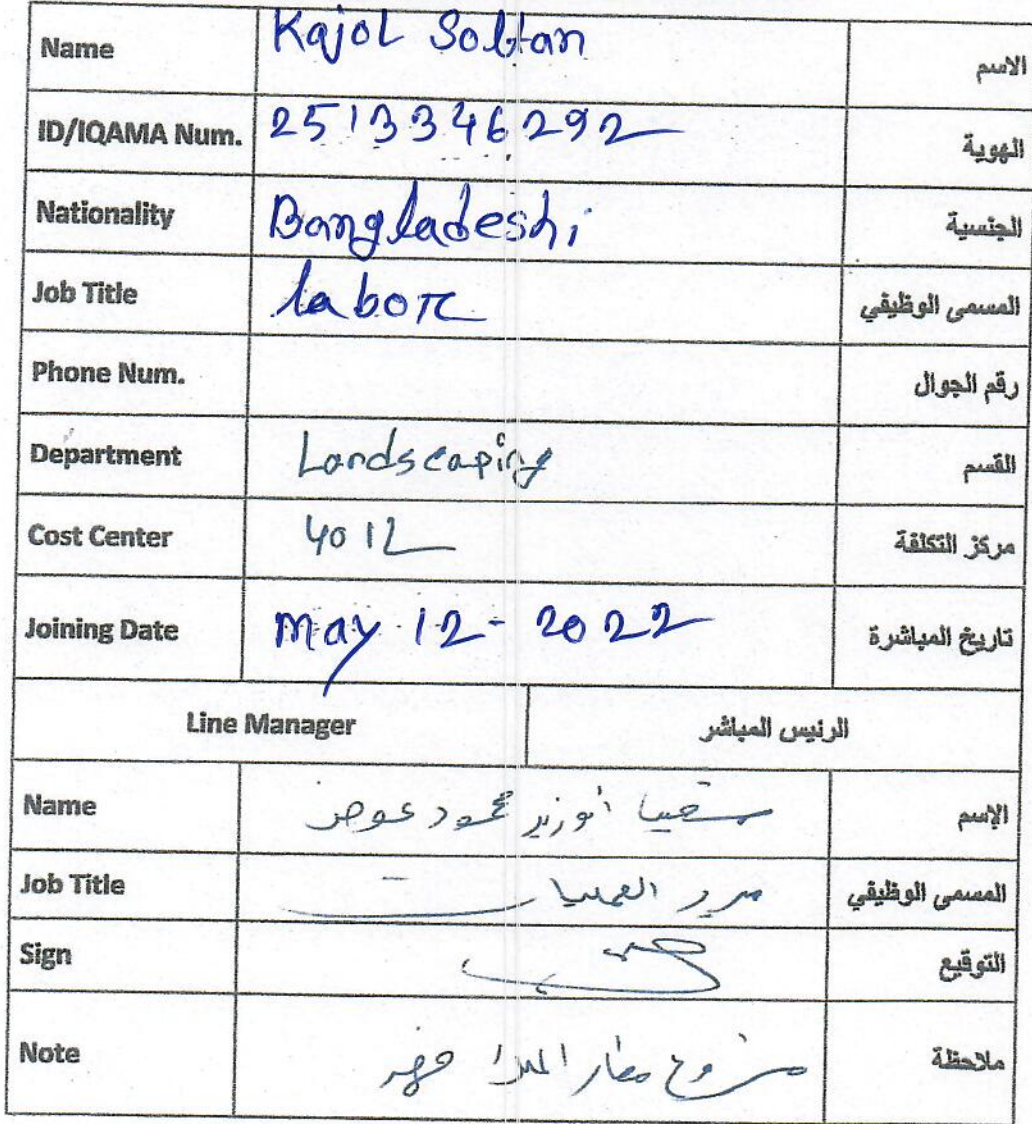 Name Kajol Soltan الاسم
ID/IQAMA Num. 2513346292 الهوية
Nationality Bangladeshi الجنسية
Job Title labor المسمى الوظيفي
Phone Num. رقم الجوال
Department Landscaping القسم
Cost Center 4012 مركز التكلفة
Joining Date May 12-2022 تاريخ المباشرة
Line Manager الرئيس المباشر
Name محمود عوض الإسم
Job Title مدير العمليات المسمى الوظيفي
Sign التوقيع
Note مشروع مطار الملك فهد ملاحظة